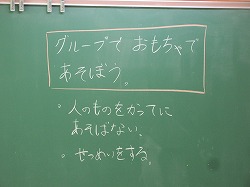 グループで おもちゃで
あそぼう。
・人のものをかってに
あそばない.
・せつめいをする.